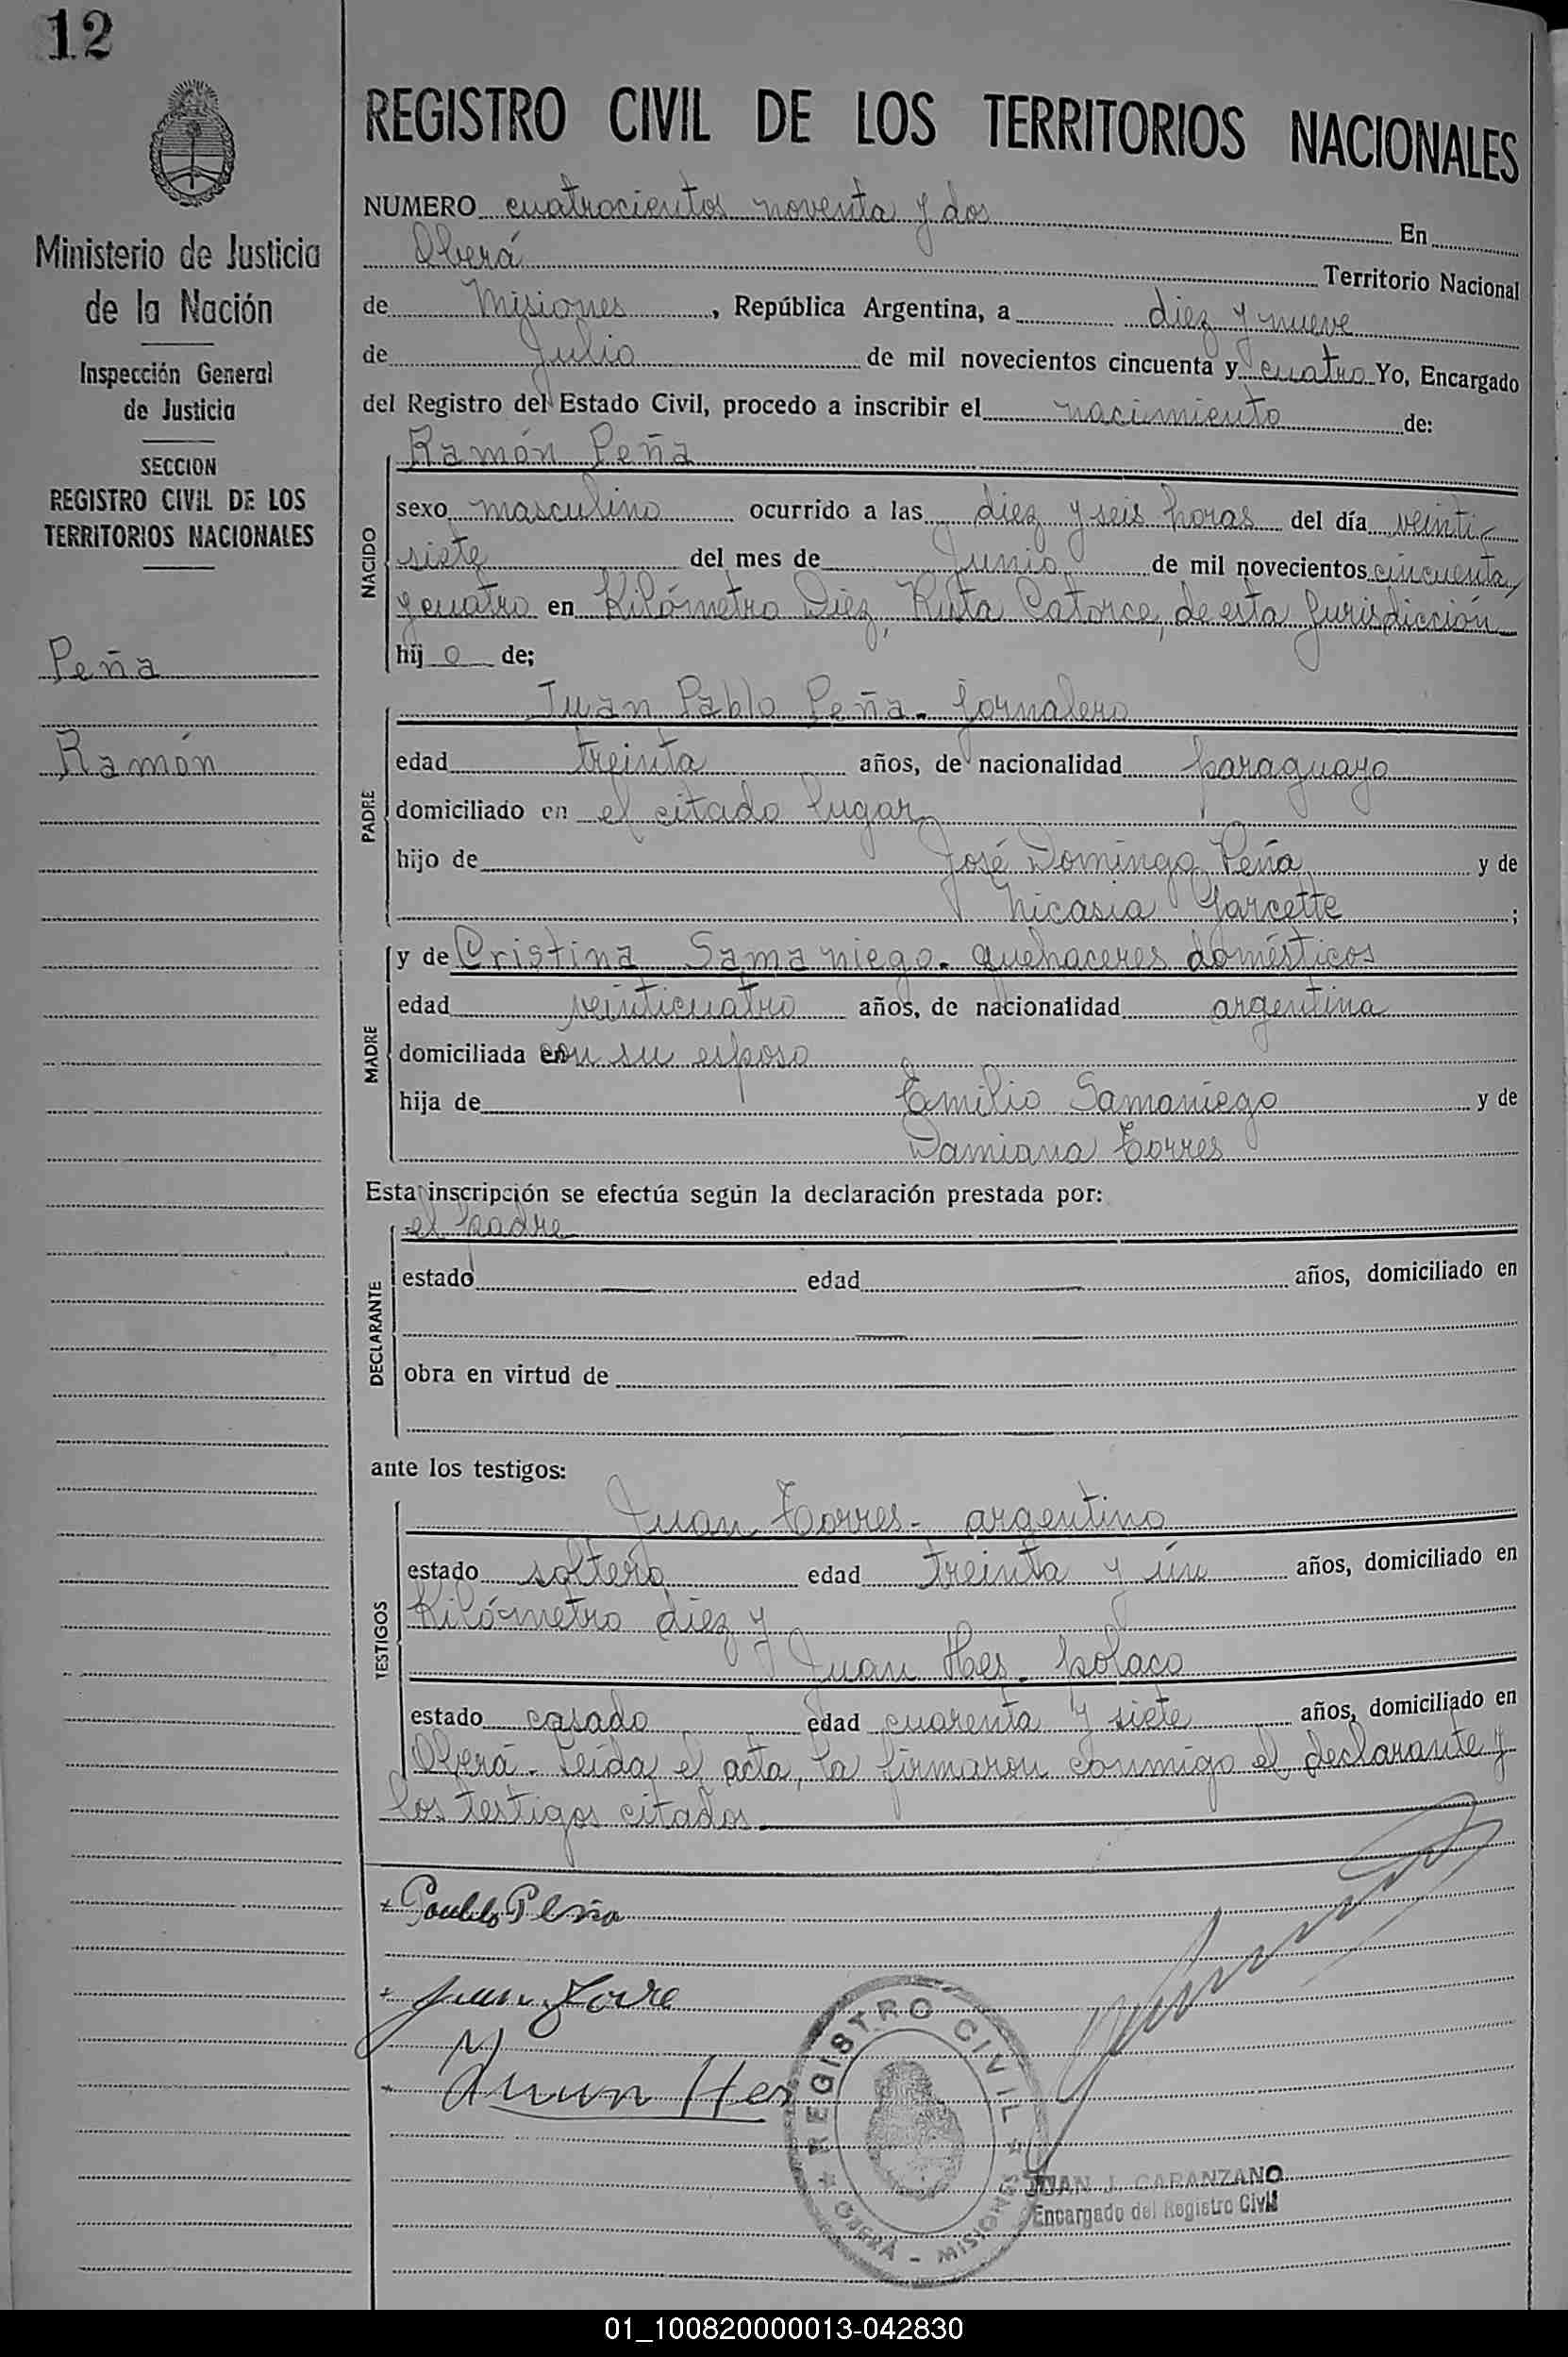 12
REGISTRO CIVIL DE LOS TERRITORIOS NACIONALES
Ministerio de Justicia
de la Nación
Inspección General
de Justicia
SECCION
REGISTRO CIVIL DE LOS
TERRITORIOS NACIONALES
Peña
Ramón
NUMERO cuatrocientos noventa y dos En
Oberá Territorio Nacional
de Misiones, República Argentina, a diez y nueve
de Julio de mil novecientos cincuenta y cuatro Yo, Encargado
del Registro del Estado Civil, procedo a inscribir el nacimiento de:
Ramón Peña
NACIDO
sexo masculino ocurrido a las diez y seis horas del día veinti-
siete del mes de Junio de mil novecientos cincuenta
y cuatro en Kilómetro Diez, Ruta Catorce, de esta Jurisdicción
hij o de;
PADRE
Juan Pablo Peña. jornalero
edad treinta años, de nacionalidad paraguayo
domiciliado en el citado lugar
hijo de José Domingo Peña y de
Nicasia Garcette;
MADRE
y de Cristina Samaniego. quehaceres domésticos
edad veinticuatro años, de nacionalidad argentina
domiciliada en con su esposo
hija de Emilio Samaniego y de
Damiana Torres
Esta inscripción se efectúa según la declaración prestada por:
DECLARANTE
el padre
estado edad años, domiciliado en
obra en virtud de
ante los testigos:
TESTIGOS
Juan Torres- argentino
estado soltero edad treinta y ún años, domiciliado en
Kilómetro diez y
Juan Hes. polaco
estado casado edad cuarenta y siete años, domiciliado en
Oberá- Leida el acta, la firmaron conmigo el declarante y
los testigos citados
Pablo Peña
Juan Torre
Juan Hes
REGISTRO CIVIL
OBERA - MISIONES
JUAN J. CARANZANO
Encargado del Registro Civil
01_100820000013-042830